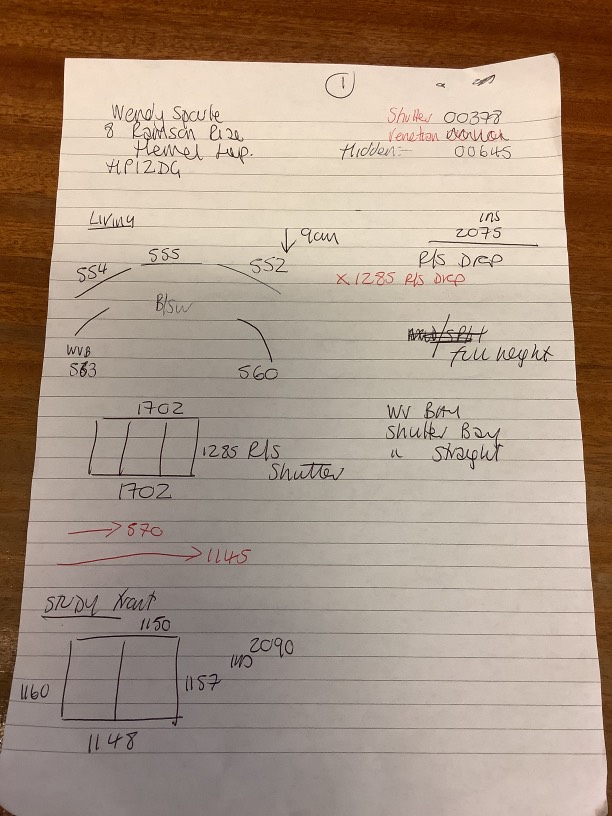 1
Wendy Sparke Shutter 00378
8 Rise Venetian
Hemel Hidden:- 00645
HP12DG
Living
ins
2075
↓ 9cm
555
554 552
R/S Drop
x 1285 R/S Drop
B/SW
full height
WVB
563 560
1702 WV BAY
Shutter Bay
1285 R/S " straight
Shutter
1702
→ 570
→ 1145
STUDY Front
1150
2090
INS
1160 1157
1148